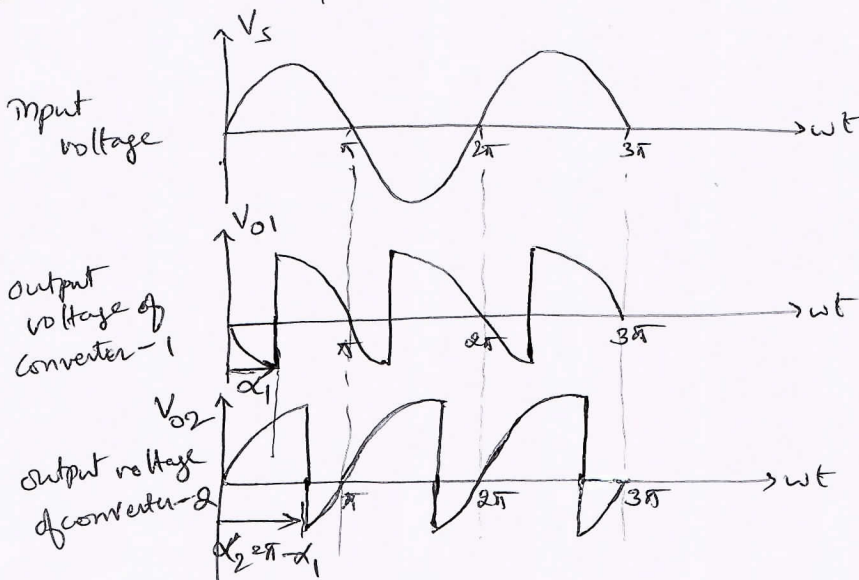 Vs
Input
voltage
π
2π
3π
ωt
Vo1
output
voltage of
converter-1
α1
π
2π
3π
ωt
Vo2
output voltage
of converter-2
α2=π-α1
π
2π
3π
ωt